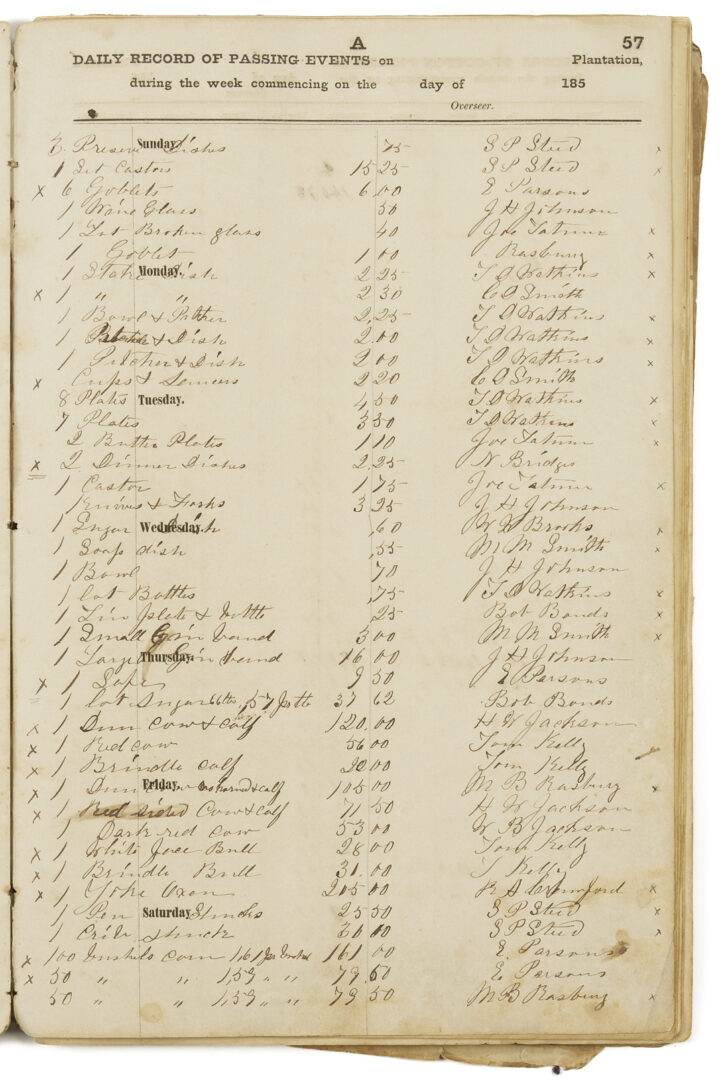 A 57
DAILY RECORD OF PASSING EVENTS on Plantation,
during the week commencing on the day of 185
Overseer.
Sunday.
Preserve Dishes 75 S P Steed x
1 Set Castors 15 25 S P Steed x
x 6 Goblets 6 00 E Parsons
1 Wine Glass 50 J H Johnson
1 Lot Broken glass 40 Joe Tatum x
1 Goblet 1 00 Rasbury x
Monday.
1 Dish 2 25 T D Watkins x
x 1 " " 2 30 C D Smith
1 Bowl & Pitcher 2 25 T D Watkins x
1 Pitcher & Dish 2.00 T D Watkins x
1 Pitcher & Dish 2 00 T D Watkins x
x Cups & 2 20 C D Smith
Tuesday.
8 Plates 4 50 T D Watkins x
7 Plates 3 50 T D Watkins x
2 Butter Plates 1 10 Joe Tatum x
x 2 Dinner Dishes 2 25 N Bridges
1 Castor 1 75 Joe Tatum x
Knives & Forks 3 25 J H Johnson
Wednesday.
1 Sugar Dish ,60 W H Brooks x
1 Soap dish ,55 M M Smith x
1 Bowl 70 J H Johnson
1 lot Bottles ,75 T D Watkins x
1 Tin plate & bottle ,25 Bob Bonds x
1 Small 3 00 M M Smith x
Thursday.
1 Large 16 00 J H Johnson
x 1 9 50 E Parsons
1 lot Sugar 37 62 Bob Bonds
x 1 Dun Cow & Calf 120.00 H W Jackson
x 1 Red cow 56 00 Tom Kelly
x 1 Brindle calf 20 00 Tom Kelly
Friday.
x 1 Dun cow & calf 105 00 M B Rasbury x
x 1 Red sided Cow & calf 71 50 H W Jackson
1 Dark red cow 53 00 W B Jackson
x 1 White face Bull 28 00 Tom Kelly
x 1 Brindle Bull 31.00 T Kelly
x 1 Yoke Oxen 205 00 R A Crawford x
Saturday.
1 Pen 25 50 S P Steed x
1 30 00 S P Steed x
x 100 bushels corn 1,61 161 00 E Parsons
x 50 " " 1,59 " " 79.50 E Parsons
50 " " 1,59 " " 79 50 M B Rasbury x